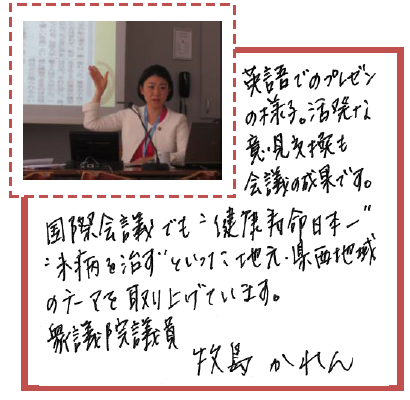 英語でのプレゼン
の様子。活発な
意見交換も
会議の成果です。
国際会議でも“健康寿命日本一”
“未病を治す”といった地元・県西地域
のテーマを取り上げています。
衆議院議員
牧島かれん